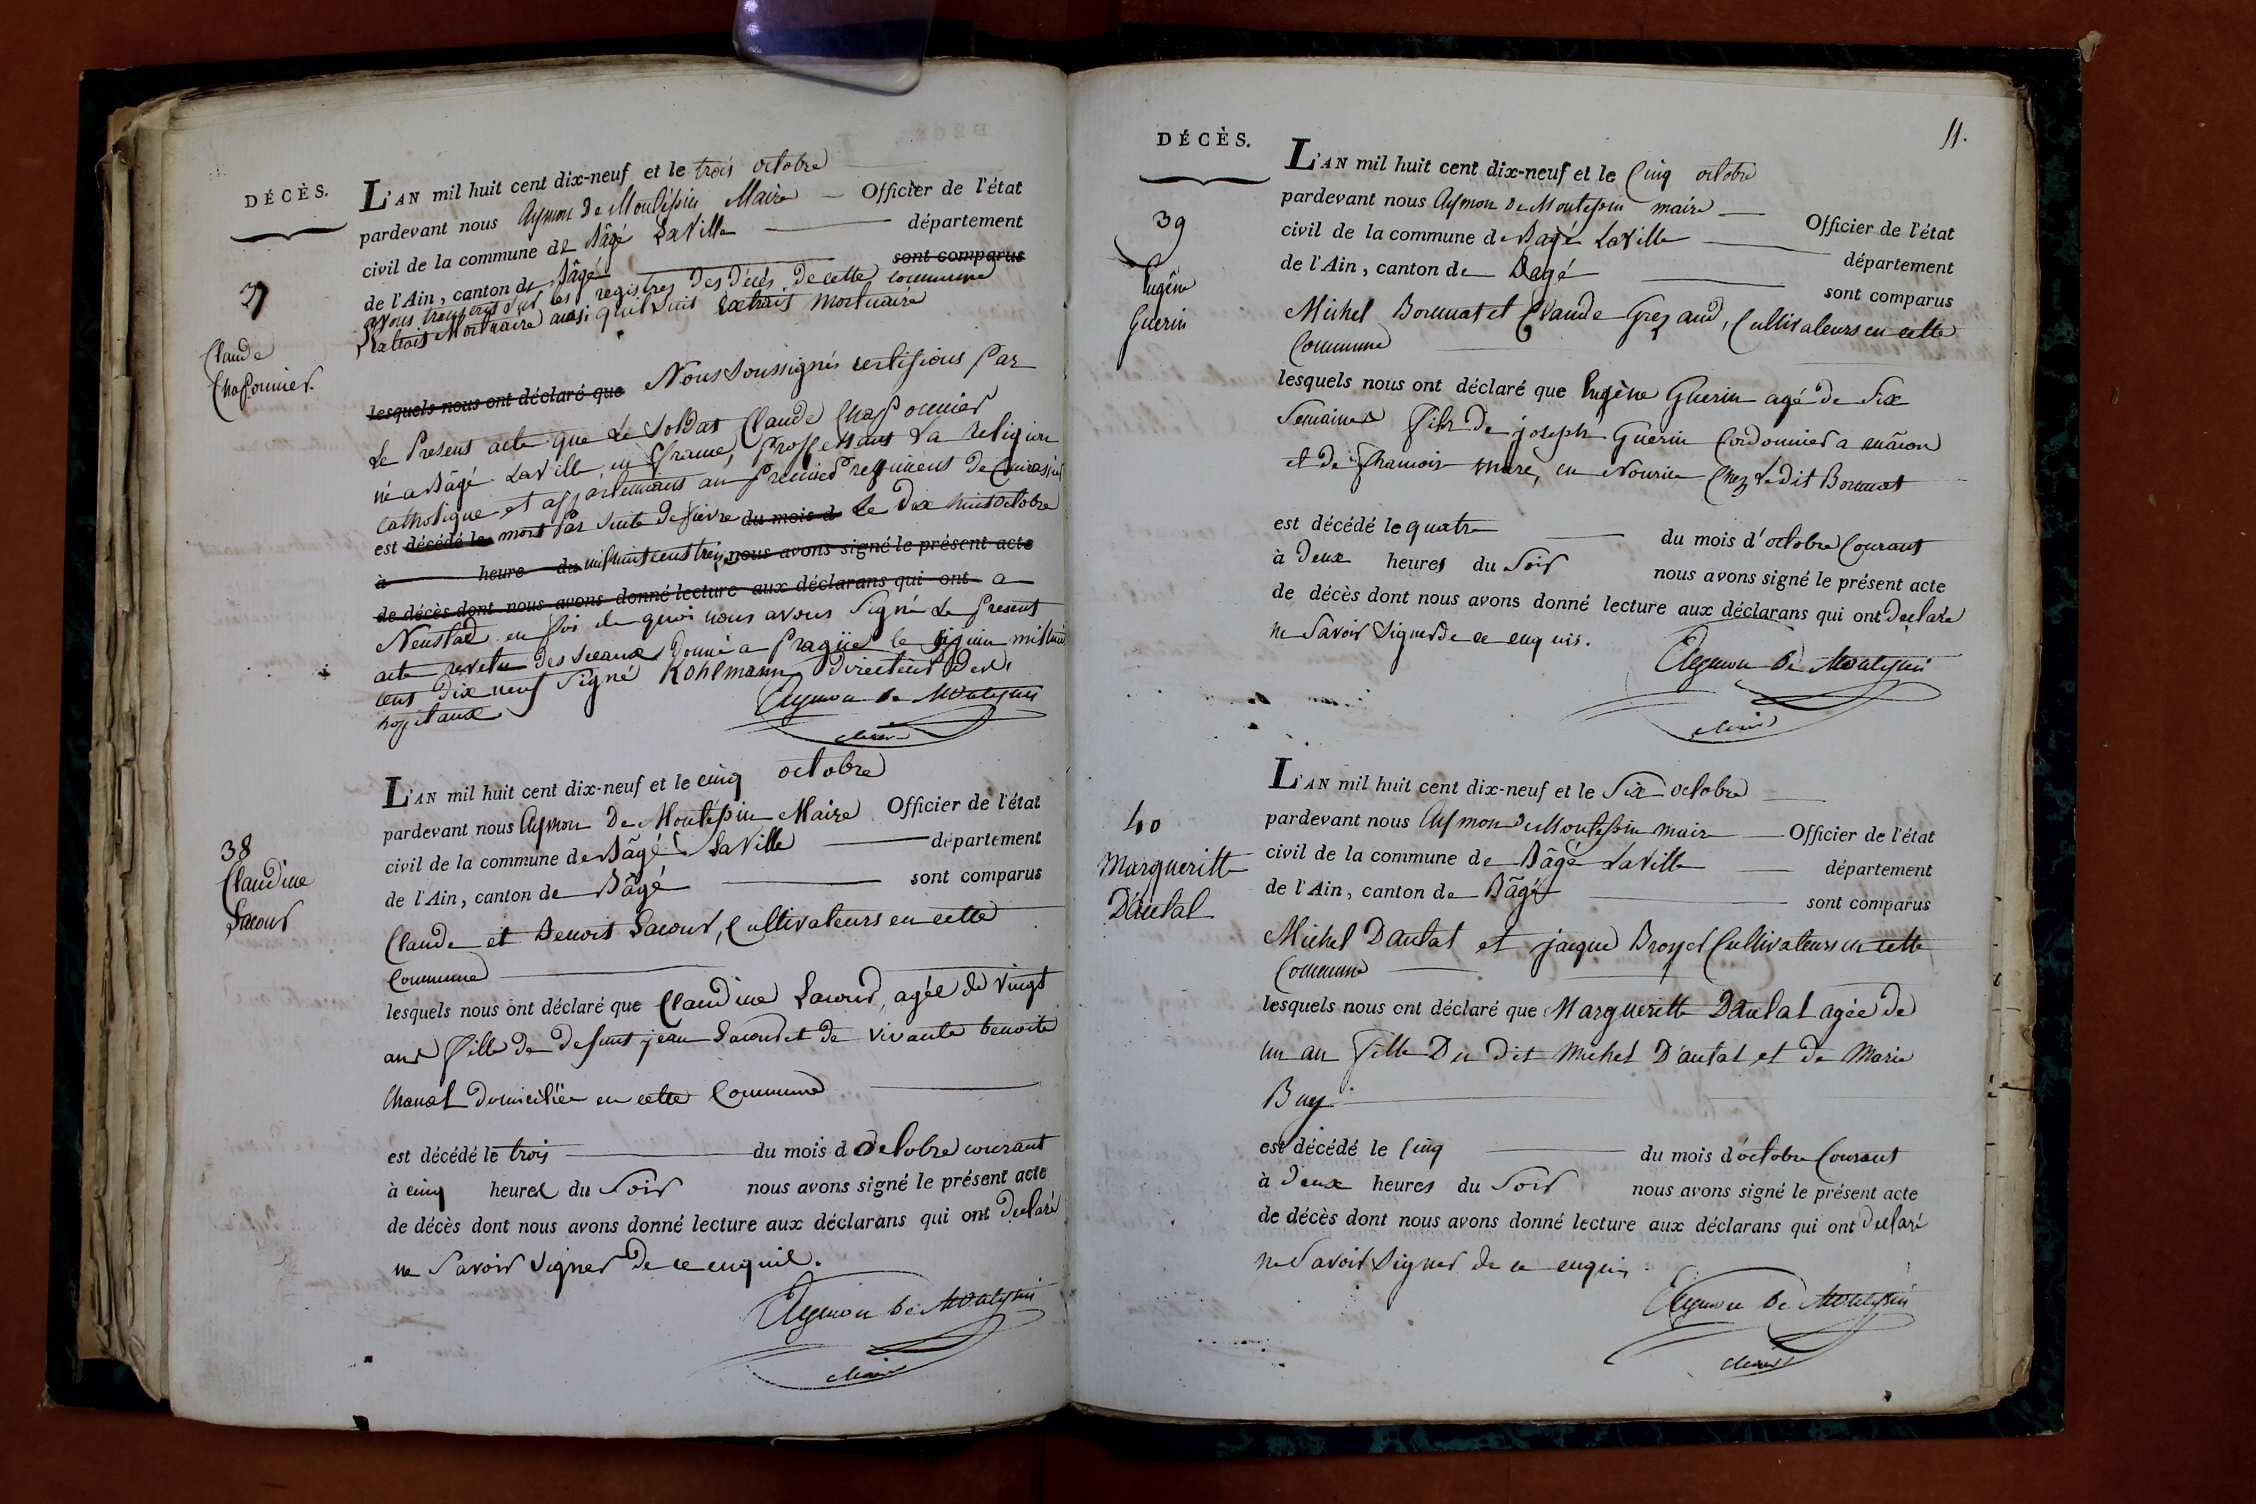 DÉCÈS.
37
Claude
Chaponnier.
L'AN mil huit cent dix-neuf et le trois octobre
pardevant nous Aymon De Montépin Maire Officier de l'état
civil de la commune de Bâgé LaVille département
de l'Ain, canton de Bâgé sont comparus
avons transcrit sur les registres des décès de cette commune
l'extrait Mortuaire ainsi qu'il suit Extrait Mortuaire
lesquels nous ont déclaré que Nous soussignés certifions Par
Le Present acte que Le Soldat Claude Chaponnier
né a Bâgé LaVille en france, Proffessant La Religion
Catholique et appartenant au Premier regiment de Cuirassier
est décédé le mort Par suite de fièvre du mois d Le Dix huit octobre
à heure du mil huit cent treize nous avons signé le présent acte
de décès dont nous avons donné lecture aux déclarans qui ont a
Neustad en foi de quoi nous avons Signé Le Present
acte revetu des sceaux, Donné a Prague le juin mil huit
cent Dix neuf Signé Kohlmann Directeur Des
hopitaux
Aymon de Montépin
Maire
38
Claudine
Lacour
L'AN mil huit cent dix-neuf et le cinq octobre
pardevant nous Aymon De Montépin Maire Officier de l'état
civil de la commune de Bâgé LaVille département
de l'Ain, canton de Bâgé sont comparus
Claude et Benoit Lacour, Cultivateurs en cette
Commune
lesquels nous ont déclaré que Claudine Lacour, agée de vingt
ans fille de defunt jean Lacour et de vivante benoite
Chanel Domiciliée en cette Commune
est décédé le trois du mois d Octobre courant
à cinq heures du Soir nous avons signé le présent acte
de décès dont nous avons donné lecture aux déclarans qui ont Declaré
ne Savoir signer De ce enquis.
Aymon de Montépin
Maire
11.
DÉCÈS.
39
Eugêne
Guerin
L'AN mil huit cent dix-neuf et le Cinq octobre
pardevant nous Aymon De Montepin maire Officier de l'état
civil de la commune de Bagé LaVille département
de l'Ain, canton de Bagé sont comparus
Michel Bornuat et Claude Grezaud, Cultivateurs en cette
Commune
lesquels nous ont déclaré que Eugène Guerin agé de Six
Semaines fils De joseph Guerin Cordonnier a mâcon
et de françoise mare, en Nourice Chez Le dit Bornuat
est décédé le quatre du mois d'octobre Courant
à Deux heures du Soir nous avons signé le présent acte
de décès dont nous avons donné lecture aux déclarans qui ont Déclaré
ne Savoir Signer de ce enquis.
Aymon de Montépin
Maire
40
Margueritte
Dautal
L'AN mil huit cent dix-neuf et le Six octobre
pardevant nous Aymon De Montepin maire Officier de l'état
civil de la commune de Bâgé LaVille département
de l'Ain, canton de Bâgé sont comparus
Michel Dautal et jaque Broyet Cultivateurs en cette
Commune
lesquels nous ont déclaré que Margueritte Dautal agée de
un an fille Du dit Michel Dautal et de Marie
Buy
est décédé le Cinq du mois d'octobre Courant
à Deux heures du Soir nous avons signé le présent acte
de décès dont nous avons donné lecture aux déclarans qui ont Déclaré
ne Savoir Signer de ce enquis
Aymon de Montépin
Maire